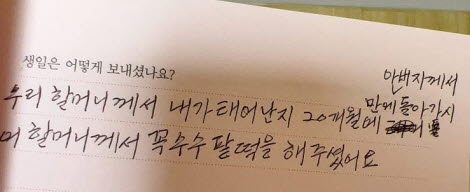 생일은 어떻게 보내셨나요?
아버지께서
우리 할머니께서 내가 태어난지 20개월에 만에 돌아가시
며 할머니께서 꼭 수수 팥떡을 해주셨어요